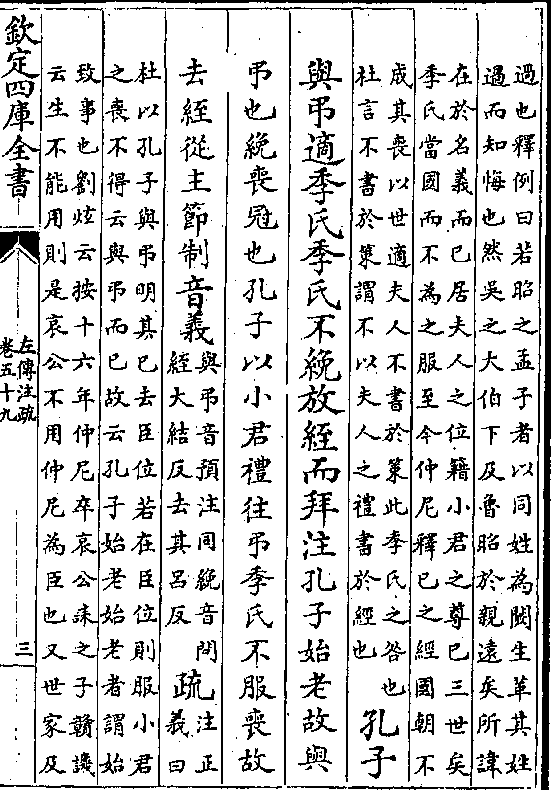 過也釋例曰若昭之孟子者以同姓為闕生革其姓
過而知悔也然吳之大伯下及魯昭於親遠矣所諱
在於名義而已居夫人之位籍小君之尊已三世矣
季氏當國而不為之服至令仲尼釋已之經國朝不
成其喪以世適夫人不書於策此季氏之咎也
杜言不書於策謂不以夫人之禮書於經也
孔子
與弔適季氏季氏不絻放絰而拜注孔子始老故與
弔也絻喪冠也孔子以小君禮往弔季氏不服喪故
去絰從主節制音義
與弔音預注同絻音問
絰大結反去其呂反
疏
注正
義曰
杜以孔子與弔明其已去臣位若在臣位則服小君
之喪不得云與弔而已故云孔子始老始老者謂始
致事也劉炫云按十六年仲尼卒哀公誄之子贛譏
云生不能用則是哀公不用仲尼為臣也又世家及
欽定四庫全書
左傳注疏
卷五十九
三